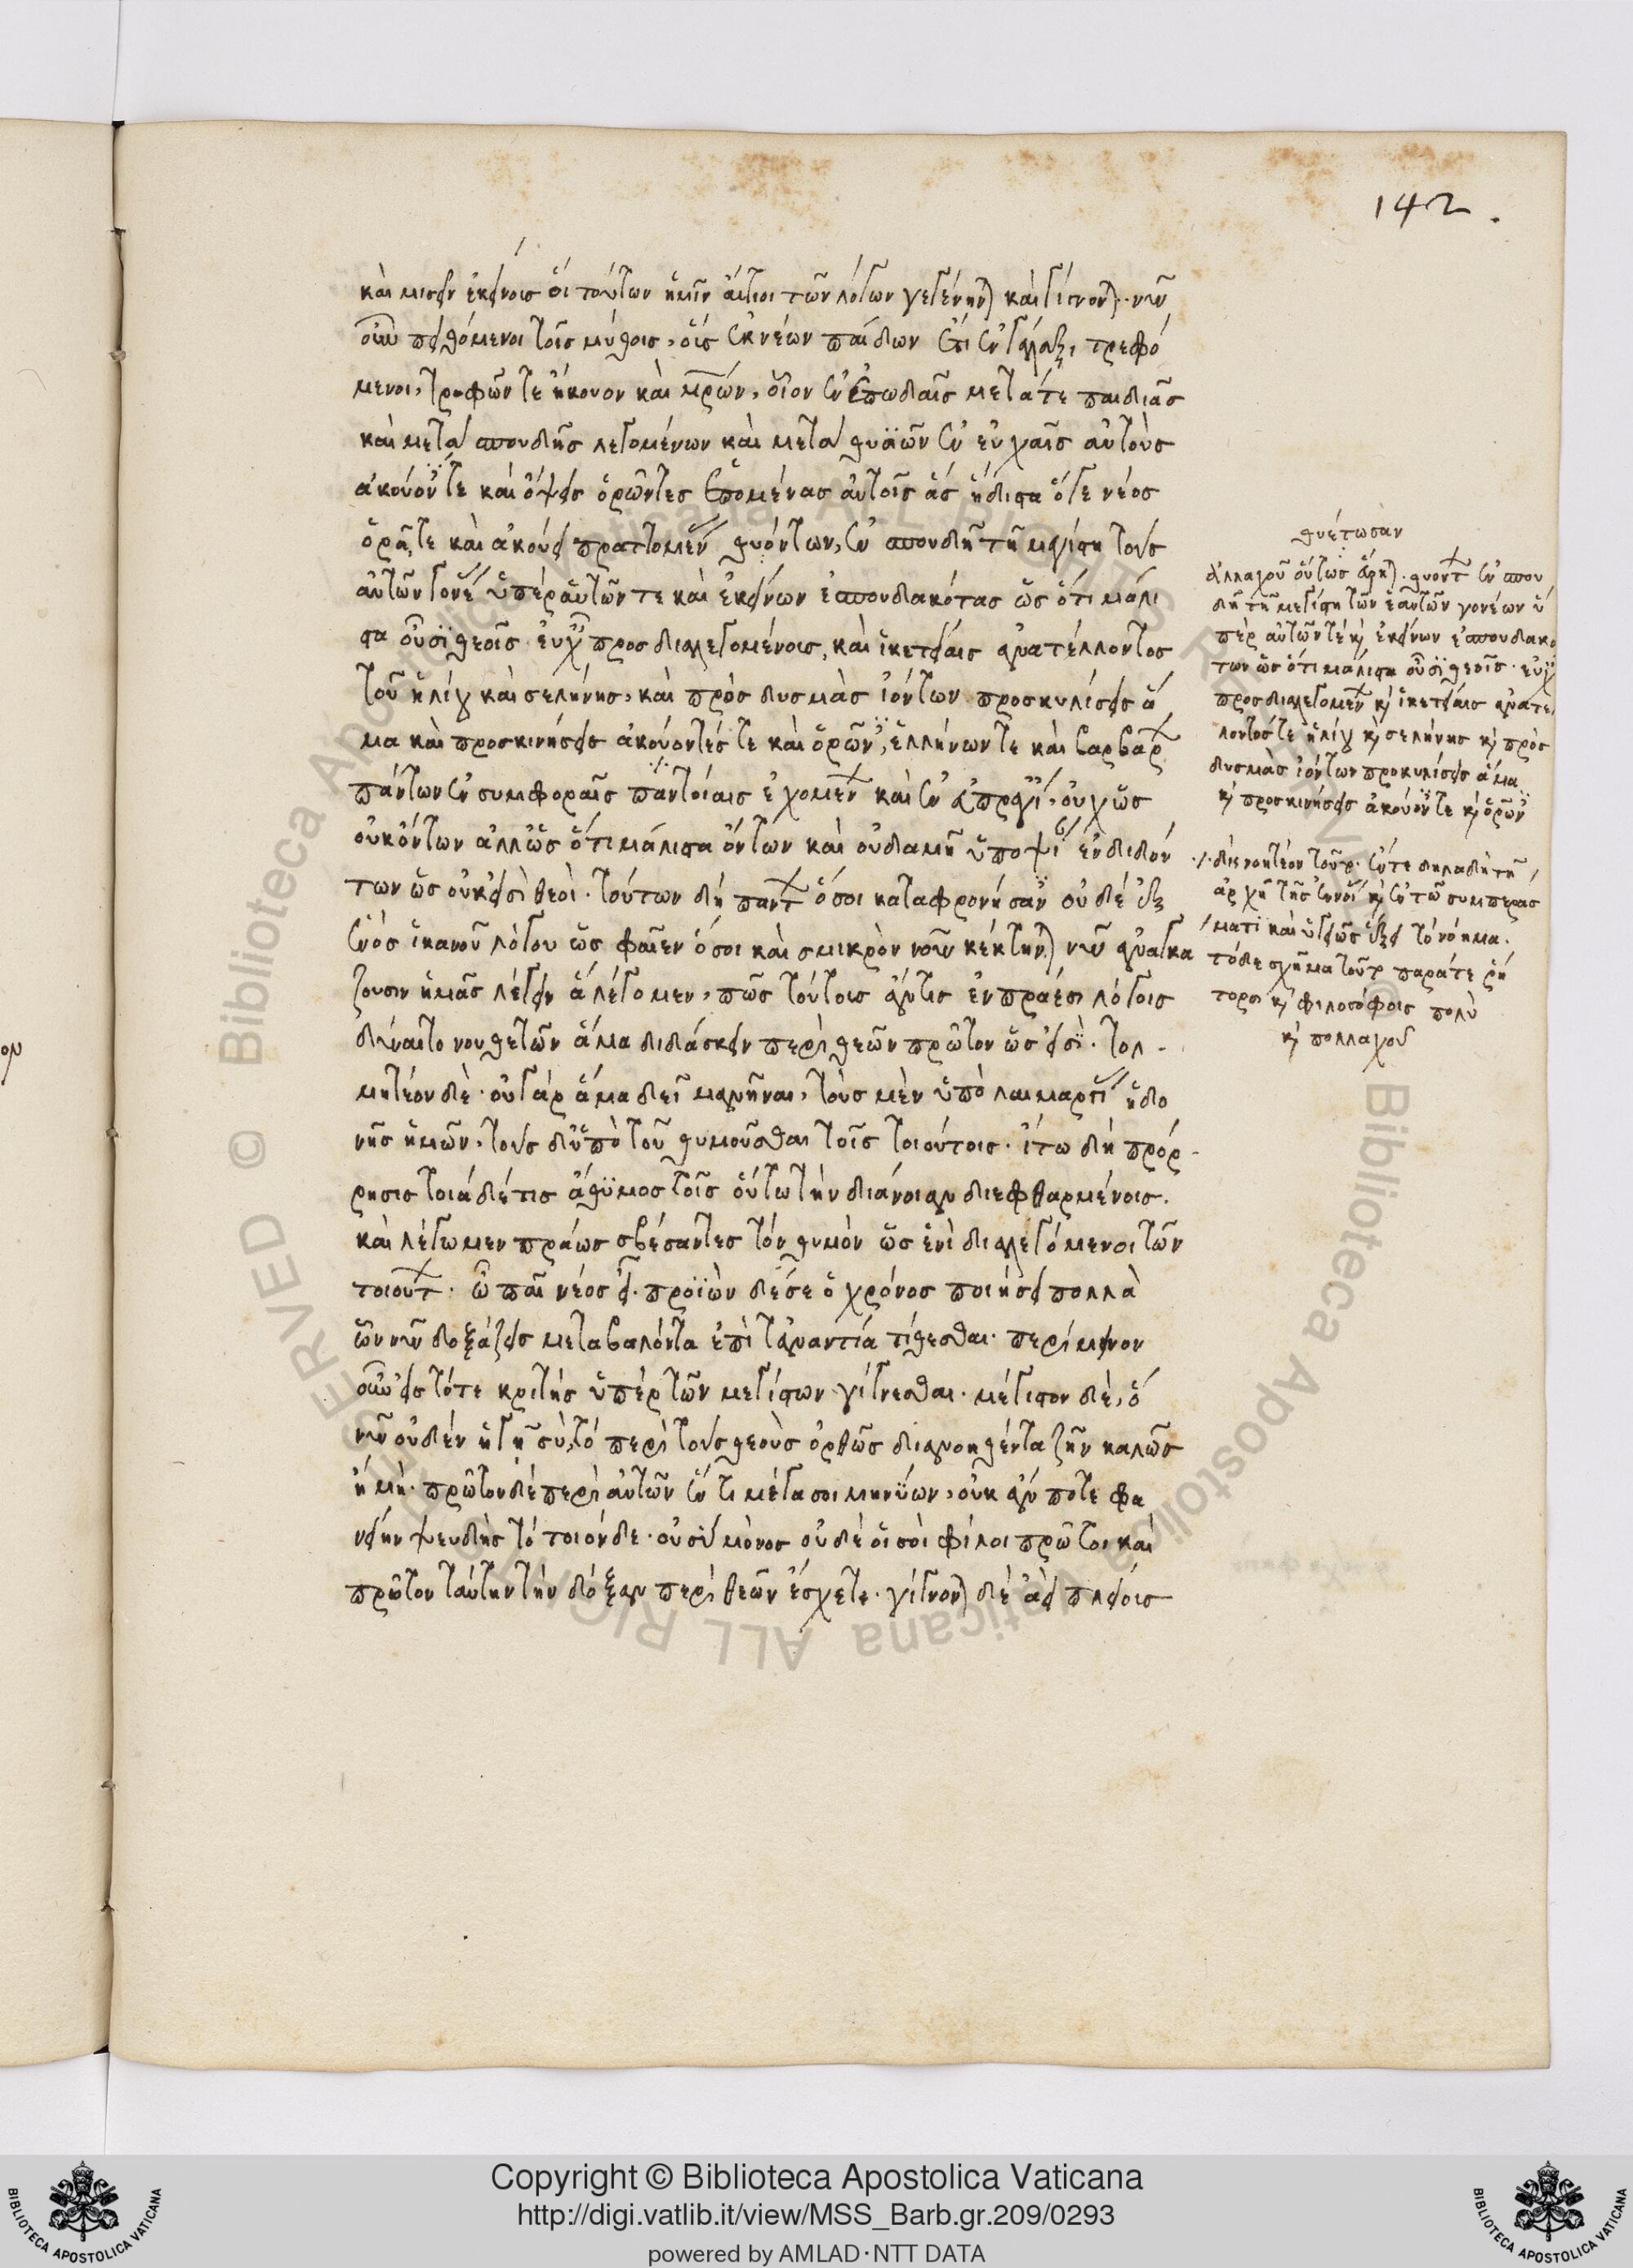 142.
καὶ μισεῖν ἐκείνοις οἳ τούτων ἡμῖν αἴτιοι τῶν λόγων γεγένηνται καὶ γίγνονται. νῦν
οὖν πειθόμενοι τοῖς μύθοις, οἷς ἐκ νέων παίδων ἔτι ἐν γάλαξι τρεφό
μενοι, τροφῶν τε ἤκουον καὶ μητρῶν, οἷον ἐν ἐπωδαῖς μετά τε παιδιᾶς
καὶ μετὰ σπουδῆς λεγομένων καὶ μετὰ θυσιῶν ἐν εὐχαῖς αὐτοὺς
ἀκούοντές τε καὶ ὄψεις ὁρῶντες ἑπομένας αὐτοῖς ἃς ἥδιστα ὅγε νέος
ὁρᾷ τε καὶ ἀκούει πραττομένας θυόντων, ἐν σπουδῇ τῇ μεγίστῃ τοὺς
αὑτῶν γονέας ὑπὲρ αὑτῶν τε καὶ ἐκείνων ἐσπουδακότας ὡς ὅτι μάλι
στα οὖσι θεοῖς εὐχαῖς προσδιαλεγομένοις, καὶ ἱκετείαις ἀνατέλλοντος
τοῦ ἡλίου καὶ σελήνης, καὶ πρὸς δυσμὰς ἰόντων προσκυλίσεις ἅ
μα καὶ προσκινήσεις ἀκούοντές τε καὶ ὁρῶντες, ἑλλήνων τε καὶ βαρβάρων
πάντων ἐν συμφοραῖς παντοίαις ἐχομένων καὶ ἐν εὐπραγίαις, οὐχ ὡς
οὐκ ὄντων ἀλλ' ὡς ὅτι μάλιστα ὄντων καὶ οὐδαμῇ ὑποψίαν ἐνδιδόν
των ὡς οὐκ εἰσὶ θεοί. τούτων δὴ πάντων ὅσοι καταφρονήσαντες οὐδὲ ἐξ
ἑνὸς ἱκανοῦ λόγου ὡς φαῖεν ὅσοι καὶ σμικρὸν νοῦν κέκτηνται νῦν ἀναγκά
ζουσιν ἡμᾶς λέγειν ἃ λέγομεν, πῶς τούτοις ἄν τις ἐν πραέσι λόγοις
δύναιτο νουθετῶν ἅμα διδάσκειν περὶ θεῶν πρῶτον ὡς εἰσί. τολ-
μητέον δέ. οὐ γὰρ ἅμα δεῖ μανῆναι, τοὺς μὲν ὑπὸ λαιμαργίας ἡδο
νῆς ἡμῶν, τοὺς δ' ὑπὸ τοῦ θυμοῦσθαι τοῖς τοιούτοις. ἴτω δὴ πρόρ-
ρησις τοιάδέ τις ἄθυμος τοῖς οὕτω τὴν διάνοιαν διεφθαρμένοις.
καὶ λέγωμεν πράως σβέσαντες τὸν θυμὸν ὡς ἑνὶ διαλεγόμενοι τῶν
τοιούτων. ὦ παῖ νέος εἶ. προϊὼν δέ σε ὁ χρόνος ποιήσει πολλὰ
ὧν νῦν δοξάζεις μεταβαλόντα ἐπὶ τἀναντία τίθεσθαι. περίμεινον
οὖν εἰς τότε κριτὴς ὑπὲρ τῶν μεγίστων γίγνεσθαι. μέγιστον δέ, ὃ
νῦν οὐδὲν ἡγῇ σύ, τὸ περὶ τοὺς θεοὺς ὀρθῶς διανοηθέντα ζῆν καλῶς
ἢ μή. πρῶτον δὲ περὶ αὐτῶν ἕν τι μέγα σοι μηνύων, οὐκ ἄν ποτε φα
νείην ψευδὴς τὸ τοιόνδε. οὐ σὺ μόνος οὐδὲ οἱ σοὶ φίλοι πρῶτοι καὶ
πρῶτον ταύτην τὴν δόξαν περὶ θεῶν ἔσχετε. γίγνονται δὲ ἀεὶ πλείοις
θυέτωσαν
ἀλλαχοῦ οὕτως εὕρηται. θυόντων ἐν σπου
δῇ τῇ μεγίστῃ τῶν ἑαυτῶν γονέων ὑ
πὲρ αὑτῶν τε καὶ ἐκείνων ἐσπουδακό
των ὡς ὅτι μάλιστα οὖσι θεοῖς. εὐχαῖς
προσδιαλεγομένων καὶ ἱκετείαις ἀνατέλ
λοντός τε ἡλίου καὶ σελήνης καὶ πρὸς
δυσμὰς ἰόντων προκυλίσεις ἅμα
καὶ προσκινήσεις ἀκούοντές τε καὶ ὁρῶντες
διανοητέον τοῦτο. ἔν τε δηλαδὴ τῇ
ἀρχῇ τῆς ἐννοίας καὶ ἐν τῷ συμπεράσ
ματι καὶ ὑγιῶς ἕξει τὸ νόημα.
τόδε σχῆμα τοῦτο παρά τε ῥή
τορσι καὶ φιλοσόφοις πολὺ
καὶ πολλαχοῦ
Copyright © Biblioteca Apostolica Vaticana
http://digi.vatlib.it/view/MSS_Barb.gr.209/0293
powered by AMLAD·NTT DATA